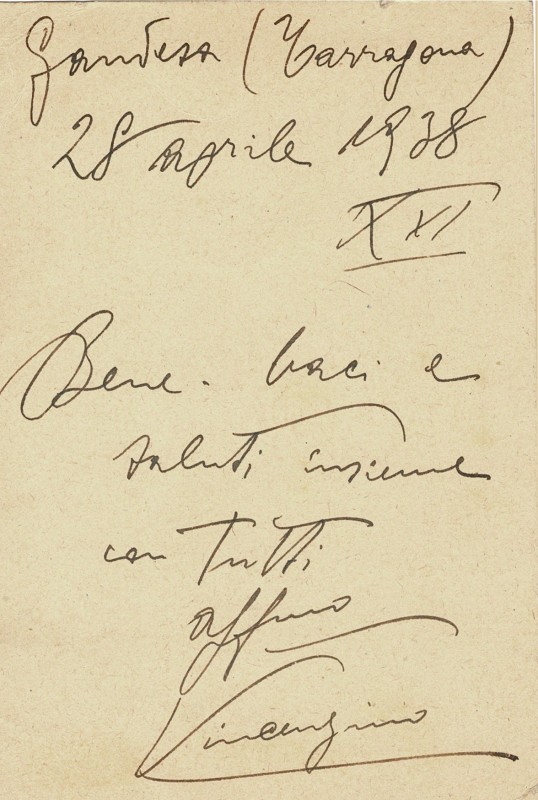 Gandesa (Tarragona)
28 aprile 1938
XVI
Bene. baci e
saluti insieme
con tutti
affmo
Vincenzino